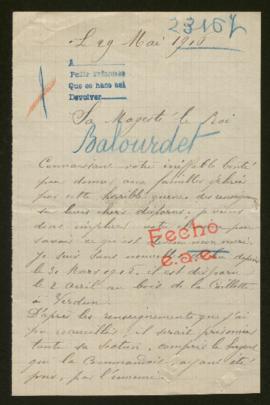 23167
Le 29 Mai 1916
A
Pedir informes
Que se haga así
Devolver
Sa Majesté le Roi
Balourdet
Connaissant votre ineffable bonté
pour donner aux familles
par cette horrible guerre, des renseignements
sur leurs chers disparus, je viens
donc implorer
savoir ce qu'est devenu mon mari.
Fecho
Je suis sans nouvelles depuis
le 30 Mars 1916, il est disparu
le 2 avril au bois de la Caillette
à Verdun.
D'après les renseignements que j'ai
pu recueillir, il serait prisonnier
toute sa section, compris le
qui la Commandait, ayant été
pris, par l'ennemi.